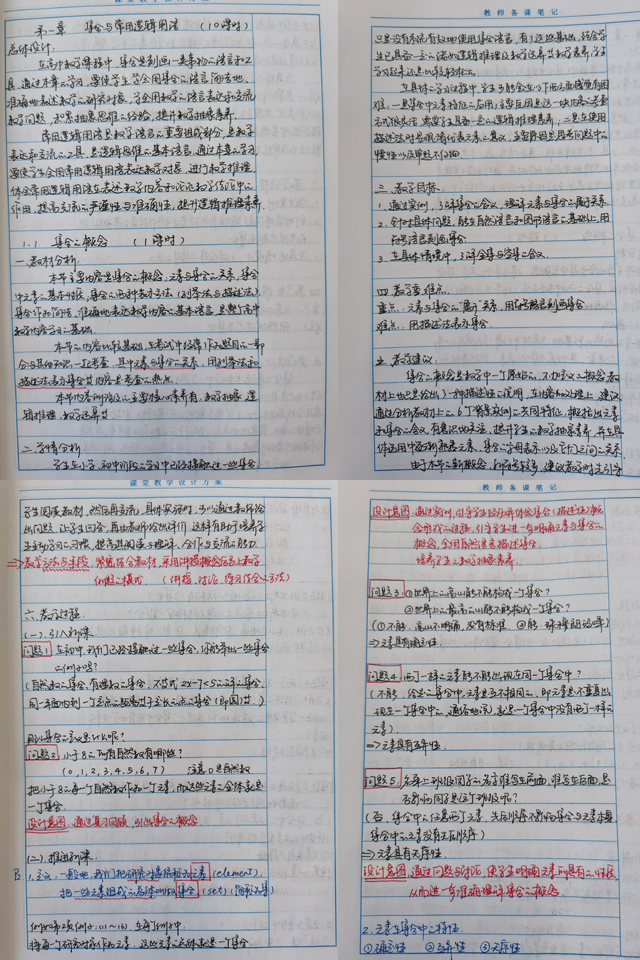 第一章 集合与常用逻辑用语 (10课时)
总体设计:
在高中数学课程中, 集合是刻画一类事物的语言和工
具, 通过本章的学习, 要使学生学会用集合的语言简洁地、
准确地表述数学的研究对象, 学会用数学的语言表达和交流
数学问题, 积累抽象思维的经验, 提升数学抽象素养.
常用逻辑用语是数学语言的重要组成部分, 是数学
表达和交流的工具, 是逻辑思维的基本语言, 通过本章的学习,
要使学生会用常用逻辑用语表达数学对象, 进行数学推理,
体会常用逻辑用语在表达数学内容和论证数学结论中的
作用, 提高交流的严谨性与准确性, 提升逻辑推理素养.
1.1 集合的概念 (1课时)
一. 教材分析.
本节主要内容是集合的概念, 元素与集合的关系, 集合
中元素的基本特征, 集合的两种表示方法 (列举法与描述法).
集合作为简洁、准确地表达数学内容的基本语言, 是整个高中
数学内容学习的基础.
本节的内容比较基础, 在考试中经常作为题目的一部
分与其他知识一起考查, 其中元素与集合的关系, 用列举法和
描述法表示集合等内容是考查的热点.
本节内容所涉及的主要核心素养有: 数学抽象, 逻
辑推理, 数学运算等.
二. 学情分析.
学生在小学、初中阶段的学习中已经接触过一些集合,
教师备课笔记
只是没有系统有效地使用集合语言, 有了这些基础, 结合学
生已具备一定的逻辑推理及数学运算等数学素养, 学生
学习起来还是比较轻松的.
三. 教学目标.
1. 通过实例, 了解集合的含义, 理解元素与集合的属于关系.
2. 针对具体问题, 能在自然语言和图形语言的基础上, 用
符号语言刻画集合.
3. 在具体情境中, 了解全集与空集的含义.
四. 教学重难点.
重点: 元素与集合的“属于”关系, 用符号语言刻画集合
难点: 用描述法表示集合.
五. 教学建议.
集合的概念是数学中一个原始的、不加定义的概念, 教
材上也只是给出了一种描述性的说明, 在内容的处理上, 建议
通过分析教材上的 6个背景实例的共同特征, 概括出元素
和集合的含义, 有意识的关注, 提升学生的数学抽象素养, 并在具
体运用中逐渐熟悉元素、集合的字母表示以及它们之间的关系
由于本节的新概念、新符号较多, 建议教学时先引导
课堂教学设计方案
学生阅读教材, 然后再交流, 具体实施时, 可以通过教师给
出问题, 让学生回答, 再由教师给出评价, 这样有助于培养学
生主动学习的习惯, 提高其阅读与理解、合作与交流的能力.
⇒教学方法与手段: 紧密结合教材, 采用讲授概念与数学
例题的模式 (讲授, 讨论, 练习结合的方法)
六. 教学过程.
(一). 引入新课.
问题1. 在初中, 我们已经接触过一些集合, 你能举出一些集合
的例子吗?
(自然数的集合, 有理数的集合, 不等式 2x-7<5的解的集合,
同一平面内到一个定点的距离等于定长的点的集合 (即圆) 等.)
那么集合的含义是什么呢?
问题2. 小于8的所有自然数有哪些?
(0, 1, 2, 3, 4, 5, 6, 7) 注意0是自然数
把小于8的每一个自然数作为一个元素, 而这些元素的全体就是
一个集合
设计意图: 通过复习回顾, 引出集合的概念.
(二) 推进新课.
1. 定义: 一般地, 我们把研究对象统称为元素 (element),
把一些元素组成的总体叫做集合 (set) (简称为集).
将每一个研究对象作为元素, 这些元素的总体就是一个集合.
教师备课笔记
设计意图: 通过实例, 引导学生经历并体验集合 (描述性) 概
念形成的过程, 引导学生进一步明确元素与集合的
概念, 会用自然语言描述集合.
培养学生的数学抽象素养.
问题3: ①世界上的高山能不能构成一个集合?
②世界上的最高的山能不能构成一个集合?
(①不能, 高山不明确, 没有标准 ②能, 珠穆朗玛峰)
⇒元素具有确定性.
问题4: 两个一样的元素能不能出现在同一个集合中?
(不能, 给定的集合中元素是互不相同的, 即元素是不重复出
现在一个集合中的, 通俗地说, 就是一个集合中没有两个一样的
元素).
⇒元素具有互异性.
(否, 集合中的任意两个元素, 先后顺序不影响集合与元素本身
集合中的元素没有先后顺序)
⇒元素具有无序性.
设计意图: 通过问题与讨论, 使学生明确元素所具有的性质,
从而进一步准确理解集合的概念.
2. 元素在集合中的特性
①确定性 ②互异性 ③无序性